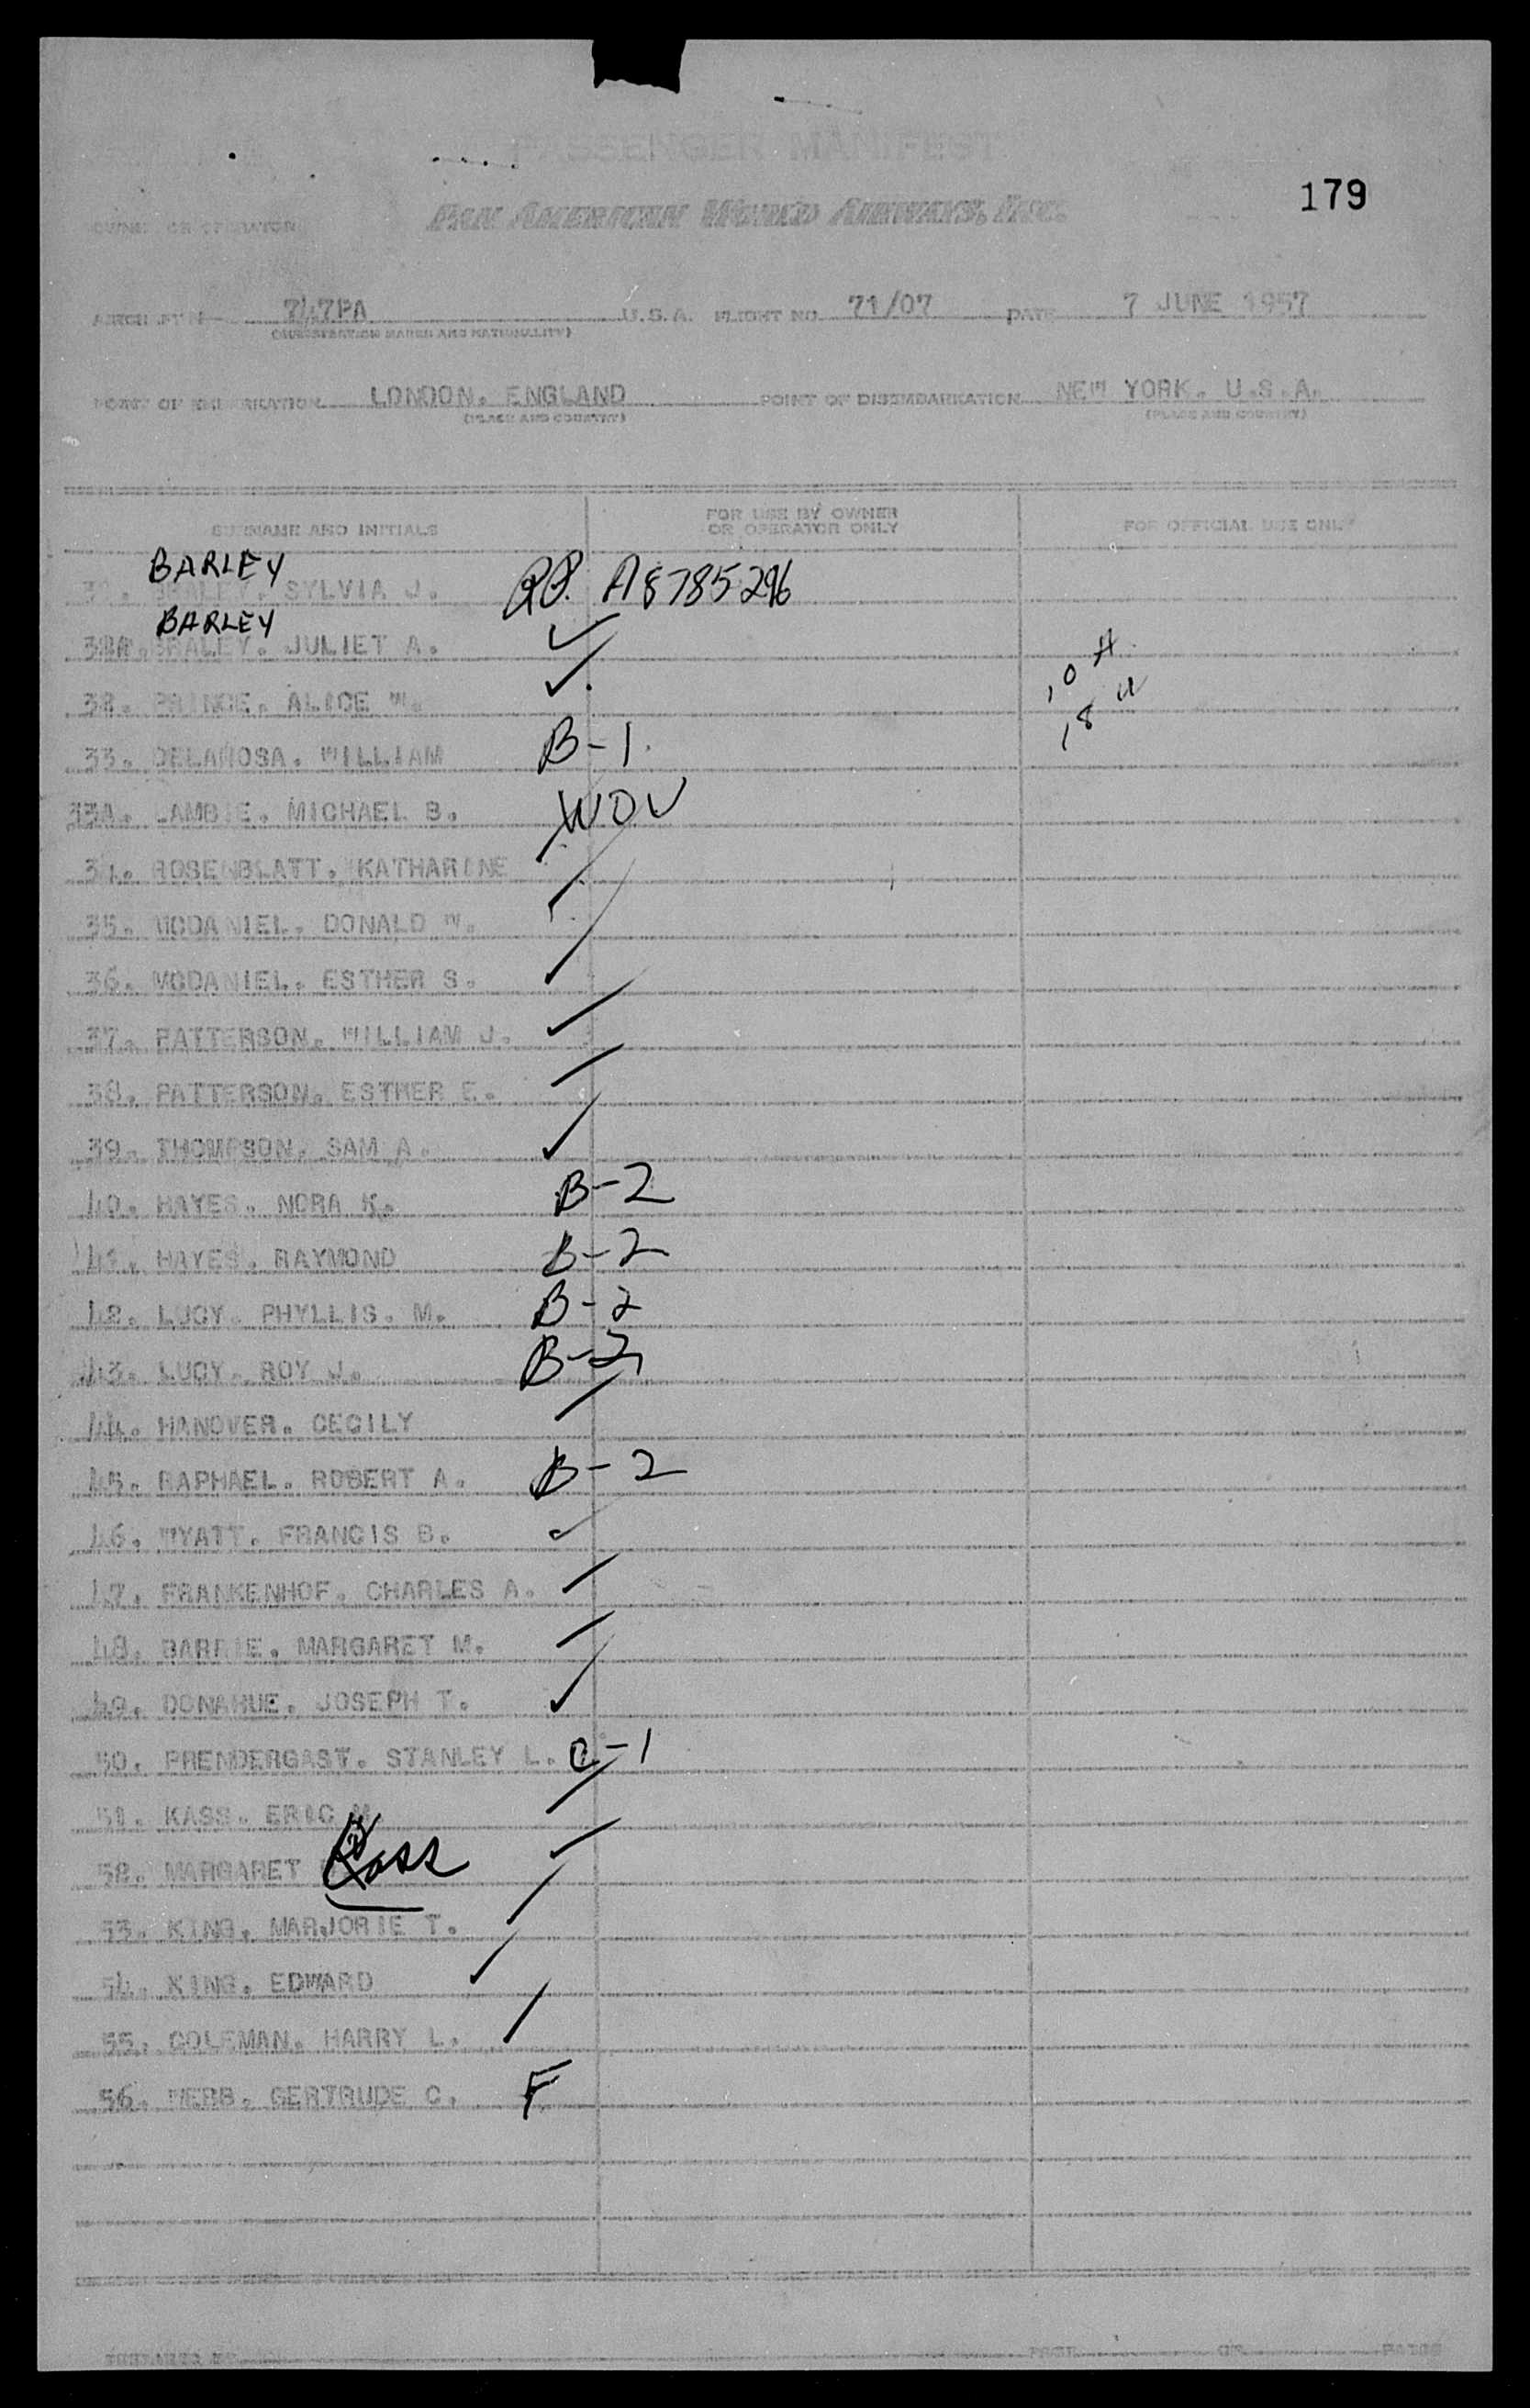 PASSENGER MANIFEST
179
OWNER OR OPERATOR PAN AMERICAN WORLD AIRWAYS, INC.
747PA U.S.A. FLIGHT NO. 71/07 DATE 7 JUNE 1957
(REGISTRATION MARKS AND NATIONALITY)
POINT OF EMBARKATION LONDON, ENGLAND POINT OF DISEMBARKATION NEW YORK, U.S.A.
(PLACE AND COUNTRY) (PLACE AND COUNTRY)
SURNAME AND INITIALS FOR USE BY OWNER OR OPERATOR ONLY FOR OFFICIAL USE ONLY
BARLEY
BRALEY, SYLVIA J. A8785296
BARLEY
BRALEY, JULIET A. ✓
32. PRINCE, ALICE W. ✓
33. DELANOSA, WILLIAM B-1
33A. LAMBIE, MICHAEL B. WOV
34. ROSENBLATT, KATHARINE
35. MCDANIEL, DONALD W.
36. MCDANIEL, ESTHER S.
37. PATTERSON, WILLIAM J.
38. PATTERSON, ESTHER E.
39. THOMPSON, SAM A.
40. HAYES, NORA K. B-2
41. HAYES, RAYMOND B-2
42. LUCY, PHYLLIS. M. B-2
43. LUCY, ROY J. B-2
44. HANOVER, CECILY
45. RAPHAEL, ROBERT A. B-2
46. WYATT, FRANCIS B.
47. FRANKENHOF, CHARLES A.
48. BARRIE, MARGARET M.
49. DONAHUE, JOSEPH T.
50. PRENDERGAST, STANLEY L. C-1
51. KASS, ERIC M.
52. MARGARET Kass
53. KING, MARJORIE T.
54. KING, EDWARD
55. COLEMAN, HARRY L.
56. WEBB, GERTRUDE C. F
PAGE OF PAGES